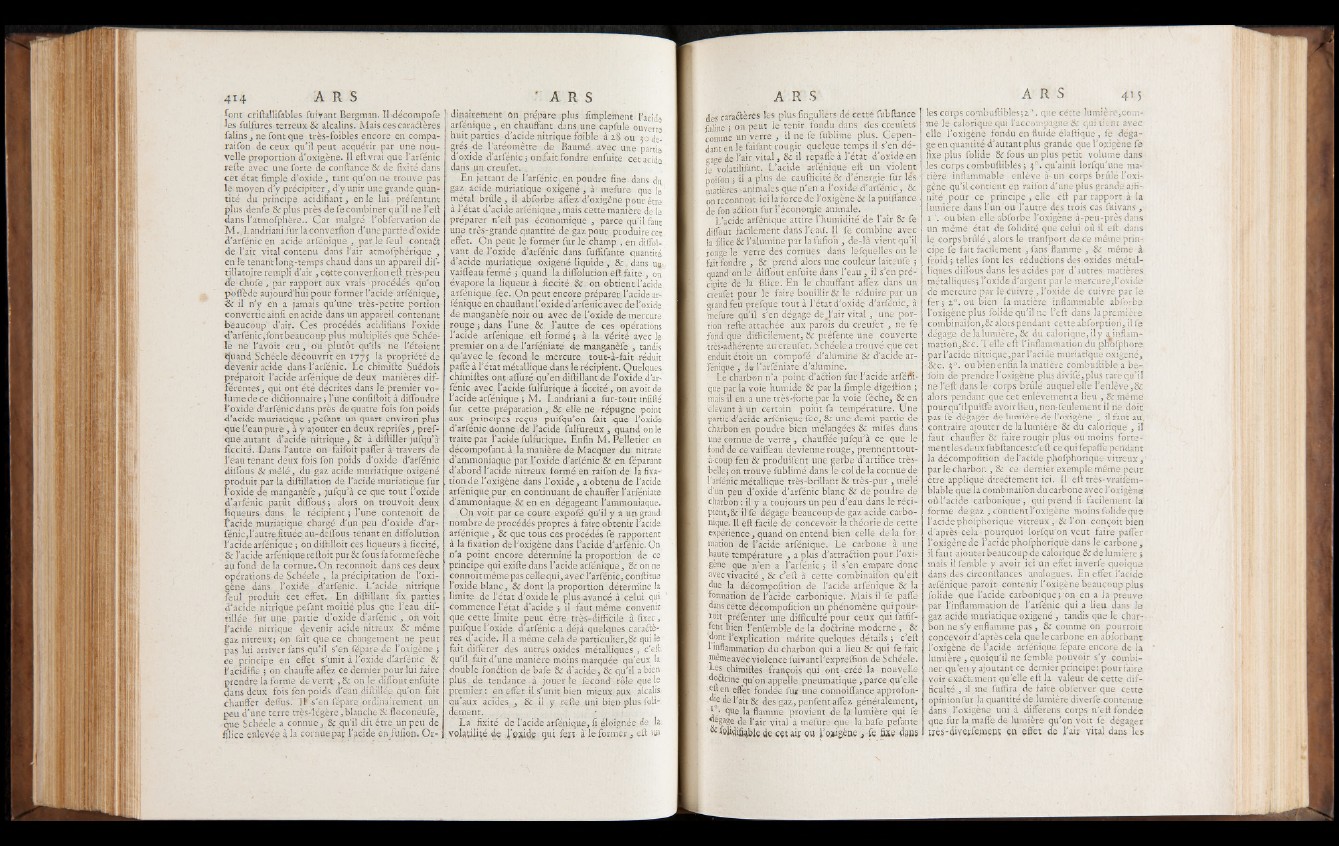 414 A R S
sont cristallisables suivant Bergman. Il décompose
les sulfures terreux & alcalins. Mais ces caractères
salins, ne sont que très-foibles encore en compa-
raison de ceux qu'il peut acquérir par une nou-
velle proportion d'oxigène. Il est vrai que l'arsénic
reste avec une forte de consistance & de fixité dans
cet état simple d'oxide, tant qu'on ne trouve pas
le moyen d'y précipiter, d'y unir une grande quan-
tité du principe acidifiant, en le lui présentant
plus dense & plus près de se combiner qu'il ne l'est
dans l'atmosphère. Car malgré l'observation de
M. Landriani sur la conversion d'une partie d'oxide
d'arsénic en acide arsénique, par le seul contact
de l'air vital contenu dans l'air atmosphérique,
en le tenant long-temps chaud dans un appareil dis-
tillatoire rempli d'air, cette conversion est très-peu
de chose, par rapport aux vrais procédés qu'on
possède aujourd'hui pour former l'acide arsénique,
& il n'y en a jamais qu'une très-petite portion
convertie ainsi en acide dans un appareil contenant
beaucoup d'air. Ces procédés acidifians l'oxide
d'arsénic, sont beaucoup plus multipliés que Schée-
le ne l'avoit cru, ou plutôt qu'ils ne l'étoient
quand Schéele découvrit en 1775 la propriété de
devenir acide dans l'arsénic. Le chimiste Suédois
préparoit l'acide arsénique de deux manières dif-
férentes, qui ont été décrites dans le premier vo-
lume de ce dictionnaire; l'une consistoit à dissoudre
l'oxide d'arsénic dans près de quatre fois son poids
d'acide muriatique, pesant un quart environ plus
que l'eau pure, à y ajouter en deux reprises, pres-
que autant d'acide nitrique, & à distiller jusqu'à
siccité. Dans l'autre on faisoit passer à travers de
l'eau tenant deux fois son poids d'oxide d'arsénic
dissous & mêlé, du gaz acide muriatique oxigéné
produit par la distillation de l'acide muriatique sur
l'oxide de manganèse, jusqu'à ce que tout l'oxide
d'arsénic parût dissous; alors on trouvoit deux
liqueurs dans le récipient; l'une contenoit de
l'acide muriatique chargé d'un peu d'oxide d'ar-
sénic, l'autre située au-dessous tenant en dissolution
l'acide arsénique; on distilloit ces liqueurs à siccité,
& l'acide arsénique restoit pur & sous sa forme sèche
au fond de la cornue. On reconnoît dans ces deux
opérations de Schéele, la précipitation de l'oxi-
gène dans l'oxide d'arsénic. L'acide nitrique
seul produit cet effet. En distillant six parties
d'acide nitrique pesant moitié plus que l'eau dis-
tillée sur une partie d'oxide d'arsénic, on voit
l'acide nitrique devenir acide nitreux & même
gaz nitreux; on sait que ce changement ne peut
pas lui arriver sans qu'il s'en sépare de l'oxigène;
ce principe en effet s'unit à l'oxide d'arsénic &
l'acidifie; on chauffe assez ce dernier pour lui faire
prendre la forme de verre, & on le dissout ensuite
dans deux fois son poids d'eau distillée qu'on fait
chauffer dessus. Il s'en sépare ordinairement un
peu d'une terre très-légère, blanche & floconeuse,
que Schéele a connue, & qu'il dit être un peu de
silice enlevée à la cornue par l'acide en fusion. Or-
A R S
dinairement on prépare plus simplement l'acide
arsénique, en chauffant dans une capsule ouverte
huit parties d'acide nitrique foible à 28 ou 30 de-
grés de l'aréomètre de Baumé avec une partie
d'oxide d'arsénic; on fait fondre ensuite cet acide
dans un creuset.
En jettant de l'arsénic en poudre fine dans du
gaz acide muriatique oxigéné, à mesure que le
métal brûle, il absorbe assez d'oxigène pour être
à l'état d'acide arsénique, mais cette manière de le
préparer n'est pas économique, parce qu'il faut
une très-grande quantité de gaz pour produire cet
effet. On peut le former sur le champ, en dissol-
vant de l'oxide d'arsénic dans suffisante quantité
d'acide muriatique oxigéné liquide, & dans un
vaisseau fermé; quand la dissolution est faite, on
évapore la liqueur à siccité & on obtient l'acide
arsénique sec. On peut encore préparer l'acide ar-
sénique en chauffant l'oxide d'arsénic avec de l'oxide
de manganèse noir ou avec de l'oxide de mercure
rouge; dans l'une & l'autre de ces opérations
l'acide arsénique est formé; à la vérité avec le
premier on a de l'arséniate de manganèse, tandis
qu'avec le second le mercure tout-à-fait réduit
passe à l'état métallique dans le récipient. Quelques
chimistes ont assuré qu'en distillant de l'oxide d'ar-
sénic avec l'acide sulfurique à siccité, on avoit de
l'acide arsénique; M. Landriani a sur-tout insisté
sur cette préparation, & elle ne répugne point
aux principes reçus puisqu'on sait que l'oxide
d'arsénic donne de l'acide sulfureux, quand on le
traite par l'acide sulfurique. Enfin M. Pelletier en
décomposant à la manière de Macquer du nitrate
d'ammoniaque par l'oxide d'arsénic & en séparant
d'abord l'acide nitreux formé en raison de la fixa-
tion de l'oxigène dans l'oxide, a obtenu de l'acide
arsénique pur en continuant de chauffer l'arséniate
d'ammoniaque & en en dégageant l'ammoniaque.
On voit par ce court exposé qu'il y a un grand
nombre de procédés propres à faire obtenir l'acide
arsénique, & que tous ces procédés se rapportent
à la fixation de l'oxigène dans l'acide d'arsénic. On
n'a point encore déterminé la proportion de ce
principe qui existe dans l'acide arsénique, & on ne
connoît même pas celle qui, avec l'arsénic, constitue
l'oxide blanc, & dont la proportion détermine la
limite de l'état d'oxide le plus avancé à celui qui
commence l'état d'acide; il faut même convenir
que cette limite peut être très-difficile à fixer,
puisque l'oxide d'arsénic a déjà quelques caractè-
res d'acide. Il a même cela de particulier, & qui le
fait différer des autres oxides métalliques, c'est
qu'il fait d'une manière moins marquée qu'eux la
double fonction de base & d'acide, & qu'il a bien
plus de tendance à jouer le second rôle que le
premier: en effet il s'unit bien mieux aux alcalis
qu'aux acides, & il y reste uni bien plus soli-
dement.
La fixité de l'acide arsénique, si éloignée de la
volatilité de l'oxide qui sert à le former, est un
A R S
des caractères les plus singuliers de cette substance
saline; on peut le tenir fondu dans des creusets
comme un verre, il ne se sublime plus. Cepen-
dant en le faisant rougir quelque temps il s'en dé-
gage de l'air vital, & il repasse à l'état d'oxide en
se volatilisant. L'acide arsénique est un violent
poison; il a plus de causticité & d'énergie sur les
matières animales que n'en a l'oxide d'arsénic, &
on reconnoît ici la force de l'oxigène & la puissance
de son action sur l'économie animale.
L'acide arsénique attire l'humidité de l'air & se
dissout facilement dans l'eau. Il se combine avec
la silice & l'alumine par la fusion, de-là vient qu'il
ronge le verre des cornues dans lesquelles on le
fait fondre, & prend alors une couleur laiteuse;
quand on le dissout ensuite dans l'eau, il s'en pré-
cipite de la silice. En le chauffant assez dans un
creuset pour le faire bouillir & le réduire par un
grand feu presque tout à l'état d'oxide d'arsénic, à
mesure qu'il s'en dégage de l'air vital, une por-
tion reste attachée aux parois du creuset, ne se
fond que difficilement, & présente une couverte
très-adhérente au creuset. Schéele a trouvé que cet
enduit étoit un composé d'alumine & d'acide ar-
sénique, du l'arséniate d'alumine.
Le charbon n'a point d'action sur l'acide arséni-
que par la voie humide & par la simple digestion;
mais il en a une très-forte par la voie sèche, & en
élevant à un certain point sa température. Une
partie d'acide arsénique sec, & une demi partie de
charbon en poudre bien mélangées & mises dans
une cornue de verre, chauffée jusqu'à ce que le
fond de ce vaisseau devienne rouge, prennent tout-
à-coup feu & produisent une gerbe d'artifice très-
belle; on trouve sublimé dans le col de la cornue de
l'arsénic métallique très-brillant & très-pur, mêlé
d'un peu d'oxide d'arsénic blanc & de poudre de
charbon: il y a toujours un peu d'eau dans le réci-
pient, & il se dégage beaucoup de gaz acide carbo-
nique. Il est facile de concevoir la théorie de cette
expérience, quand on entend bien celle de la for-
mation de l'acide arsénique. Le carbone à une
haute température, a plus d'attraction pour l'oxi-
gène que n'en a l'arsénic; il s'en empare donc
avec vivacité, & c'est à cette combinaison qu'est
due la décomposition de l'acide arsénique & la
formation de l'acide carbonique. Mais il se passe
dans cette décomposition un phénomène qui pour-
rait présenter une difficulté pour ceux qui saisis-
sent bien l'ensemble de la doctrine moderne, &
dont l'explication mérite quelques détails; c'est
l'inflammation du charbon qui a lieu & qui se fait
même avec violence suivant l'expression de Schéele.
Les chimistes françois qui ont créé la nouvelle
doctrine qu'on appelle pneumatique, parce qu'elle
est en effet fondée sur une connoissance approfon-
die de l'air & des gaz, pensent assez généralement,
1°. que la flamme provient de la lumière qui se
dégage de l'air vital à mesure que la base pesante
& solidifiable de cet air ou l'oxigène, se fixe dans
A R S 415
les corps combustibles; 2°. que cette lumière, com-
me le calorique qui l'accompagne & qui tient avec
elle l'oxigène fondu en fluide élastique, se déga-
ge en quantité d'autant plus grande que l'oxigène se
fixe plus solide & sous un plus petit volume dans
les corps combustibles; 3°. qu'ainsi lorsqu'une ma-
tière inflammable enlève à un corps brûlé l'oxi-
gène qu'il contient en raison d'une plus grande affi-
nité pour ce principe, elle est par rapport à la
lumière dans l'un ou l'autre des trois cas suivans,
1°. ou bien elle absorbe l'oxigène à-peu-près dans
un même état de solidité que celui où il est dans
le corps brûlé, alors le transport de ce même prin-
cipe se fait facilement, sans flamme, & même à
froid; telles sont les réductions des oxides métal-
liques dissous dans les acides par d'autres matières
métalliques; l'oxide d'argent par le mercure, l'oxide
de mercure par le cuivre, l'oxide de cuivre par le
fer; 2°. ou bien sa matière inflammable absorbe
l'oxigène plus solide qu'il ne l'est dans la première
combinaison, & alors pendant cette absorption, il se
dégage de la lumière, & du calorique, il y a inflam-
mation, &c. Telle est l'inflammation du phosphore
par l'acide nitrique, par l'acide muriatique oxigéné,
&c. 3°. ou bien enfin la matière combustible a be-
soin de prendre l'oxigène plus divisé, plus rare qu'il
ne l'est dans le corps brûlé auquel elle l'enlève, &
alors pendant que cet enlèvement a lieu, & même
pour qu'il puisse avoir lieu, non-seulement il ne doit
pas se dégager de lumière de l'oxigène, il faut au
contraire ajouter de la lumière & du calorique, il
faut chauffer & faire rougir plus ou moins forte-
ment les deux substances: c'est ce qui se passe pendant
la décomposition de l'acide phosphorique vitreux,
par le charbon, & ce dernier exemple même peut
être appliqué directement ici. Il est très-vraisem-
blable que la combinaison du carbone avec l'oxigène
où l'acide carbonique, qui prend si facilement la
forme de gaz, contient l'oxigène moins solide que
l'acide phosphorique vitreux, & l'on conçoit bien
d'après cela pourquoi lorsqu'on veut faire passer
l'oxigène de l'acide phosphorique dans le carbone,
il faut ajouter beaucoup de calorique & de lumière;
mais il semble y avoir ici un effet inverse quoique
dans des circonstances analogues. En effet l'acide
arsénique paroît contenir l'oxigène beaucoup plus
solide que l'acide carbonique; on en a la preuve
par l'inflammation de l'arsénic qui a lieu dans le
gaz acide muriatique oxigéné, tandis que le char-
bon ne s'y enflamme pas, & comme on pourroit
concevoir d'après cela que le carbone en absorbant
l'oxigène de l'acide arsénique sépare encore de la
lumière, quoiqu'il ne semble pouvoir s'y combi-
ner qu'en y ajoutant ce dernier principe: pour faire
voir exactement qu'elle est la valeur de cette dif-
ficulté, il me suffira de faire observer que cette
opinion sur la quantité de lumière diverse contenue
dans l'oxigène uni à différens corps n'est fondée
que sur la masse de lumière qu'on voit se dégager
très-diversement en effet de l'air vital dans les